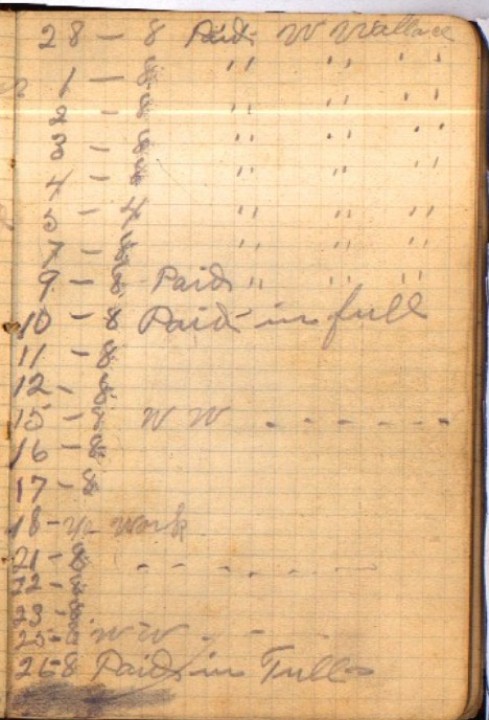 28 - 8 Paid W Wallace
1 - 8 " " "
2 - 8 " " "
3 - 8 " " "
4 - 8 " " "
5 - 4 " " "
7 - 8 " " "
9 - 8 Paid " " "
10 - 8 Paid in full
11 - 8
12 - 8
15 - 8 W W - - - - - -
16 - 8
17 - 8
18 - Work
21 - 8 - - - - - - -
22 - 8
23 - 8
25 - W W - -
26 - 8 Paid in Full -